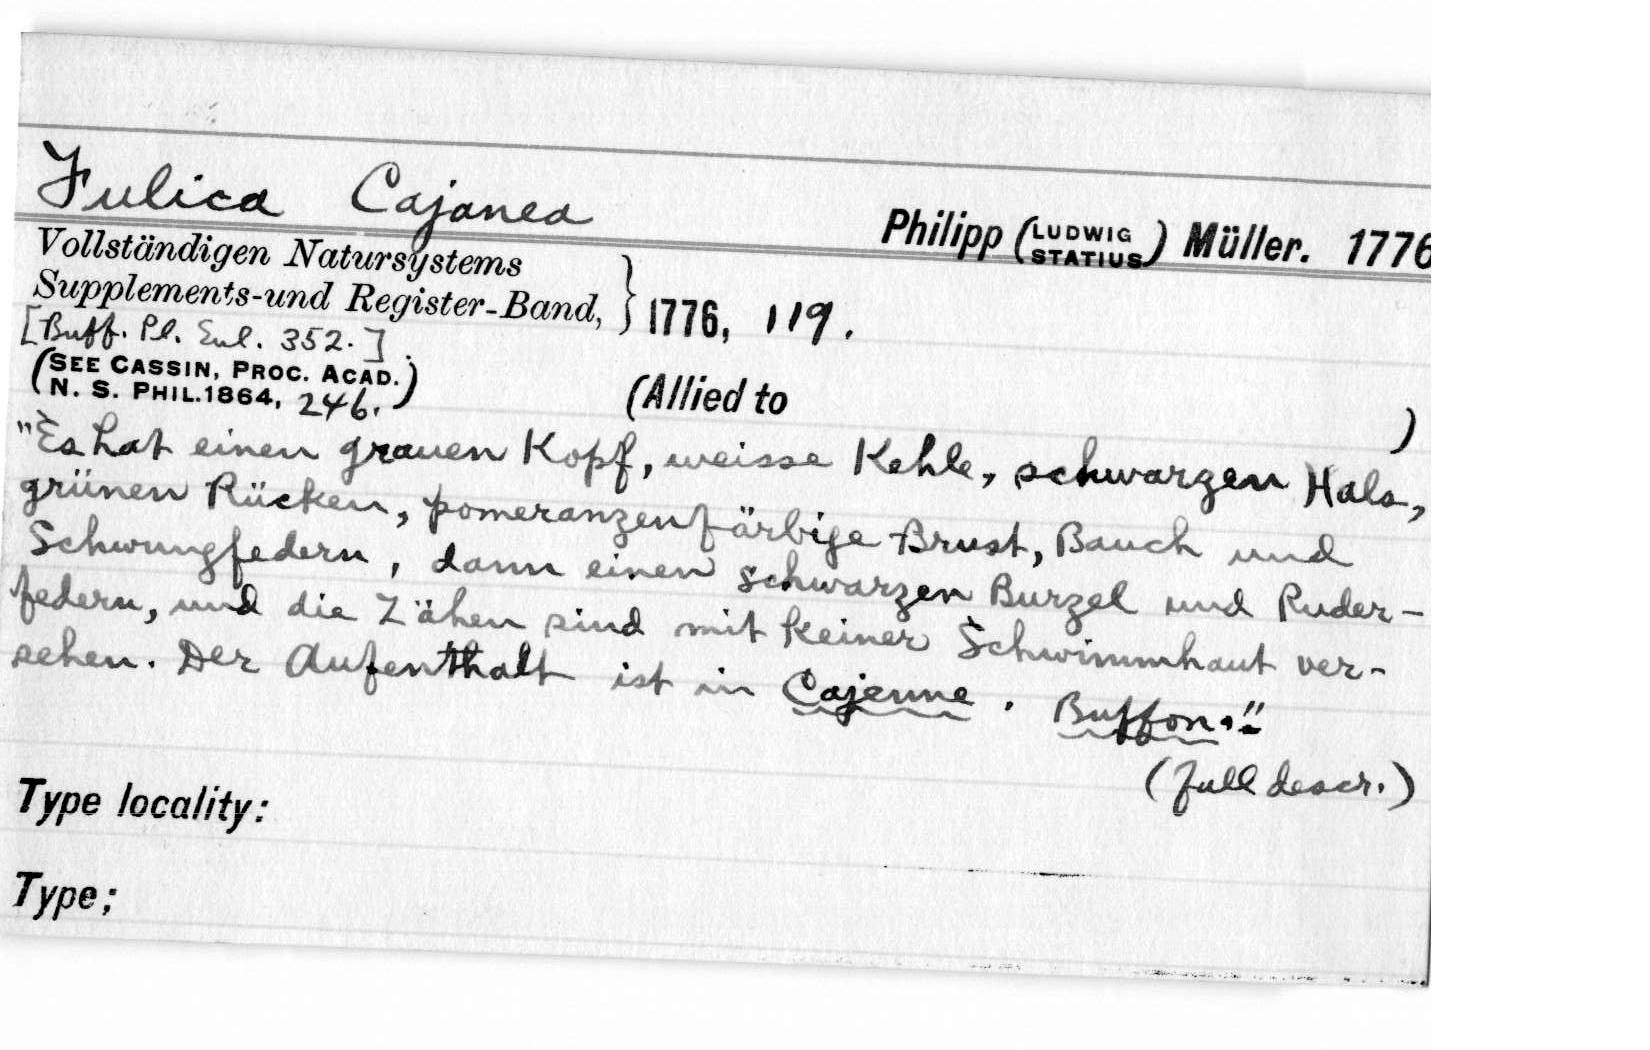 Fulica Cajanea
Philipp (LUDWIG STATIUS) Müller. 1776
Vollständigen Natursystems
Supplements-und Register-Band, } 1776, 119.
[Buff. Pl. Enl. 352.]
(SEE CASSIN, PROC. ACAD.
N. S. PHIL. 1864, 246.)
(Allied to )
"Es hat einen grauen Kopf, weisse Kehle, schwarzen Hals,
grünen Rücken, pomeranzenfärbige Brust, Bauch und
Schwungfedern, dann einen schwarzen Burzel und Ruder-
federn, und die Zähen sind mit keiner Schwimmhaut ver-
sehen. Der Aufenthalt ist in Cajenne. Buffon."
(full descr.)
Type locality:
Type;